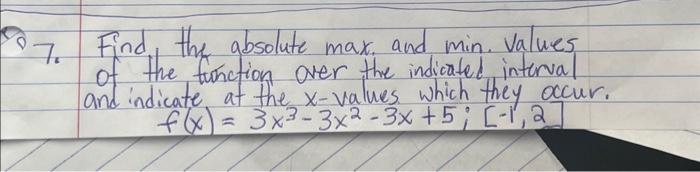 7. Find the absolute max. and min. values
of the function over the indicated interval
and indicate at the x-values which they occur.
f(x) = 3x³ - 3x² - 3x + 5; [-1, 2]